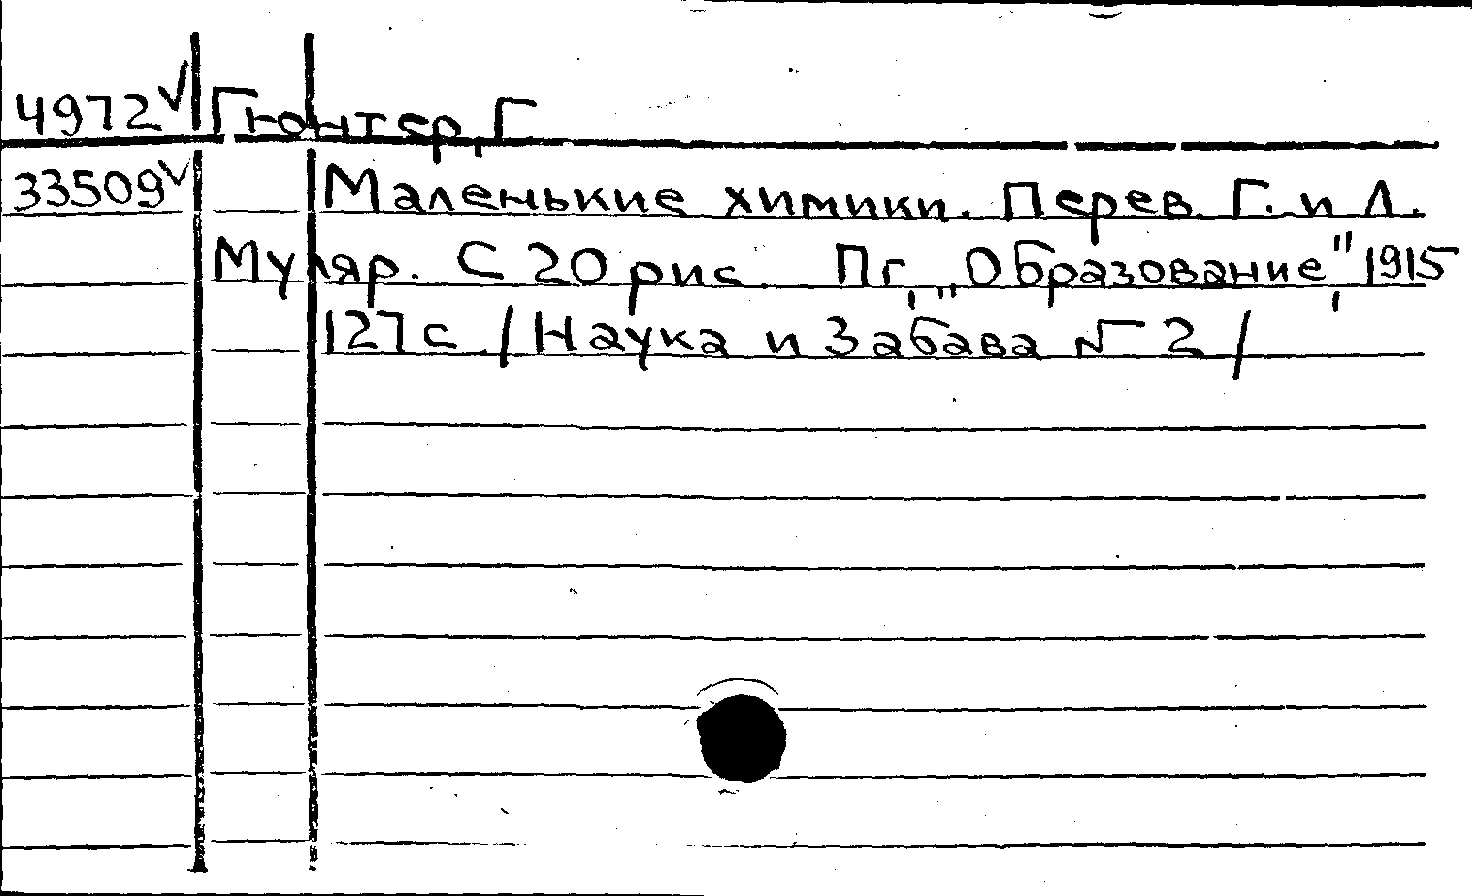 4972 √ Гюнтер, Г
33509 √ Маленькие химики. Перев. Г. и Л.
Муляр. С 20 рис. Пг, „Образование", 1915
127 с. /Наука и Забава № 2/